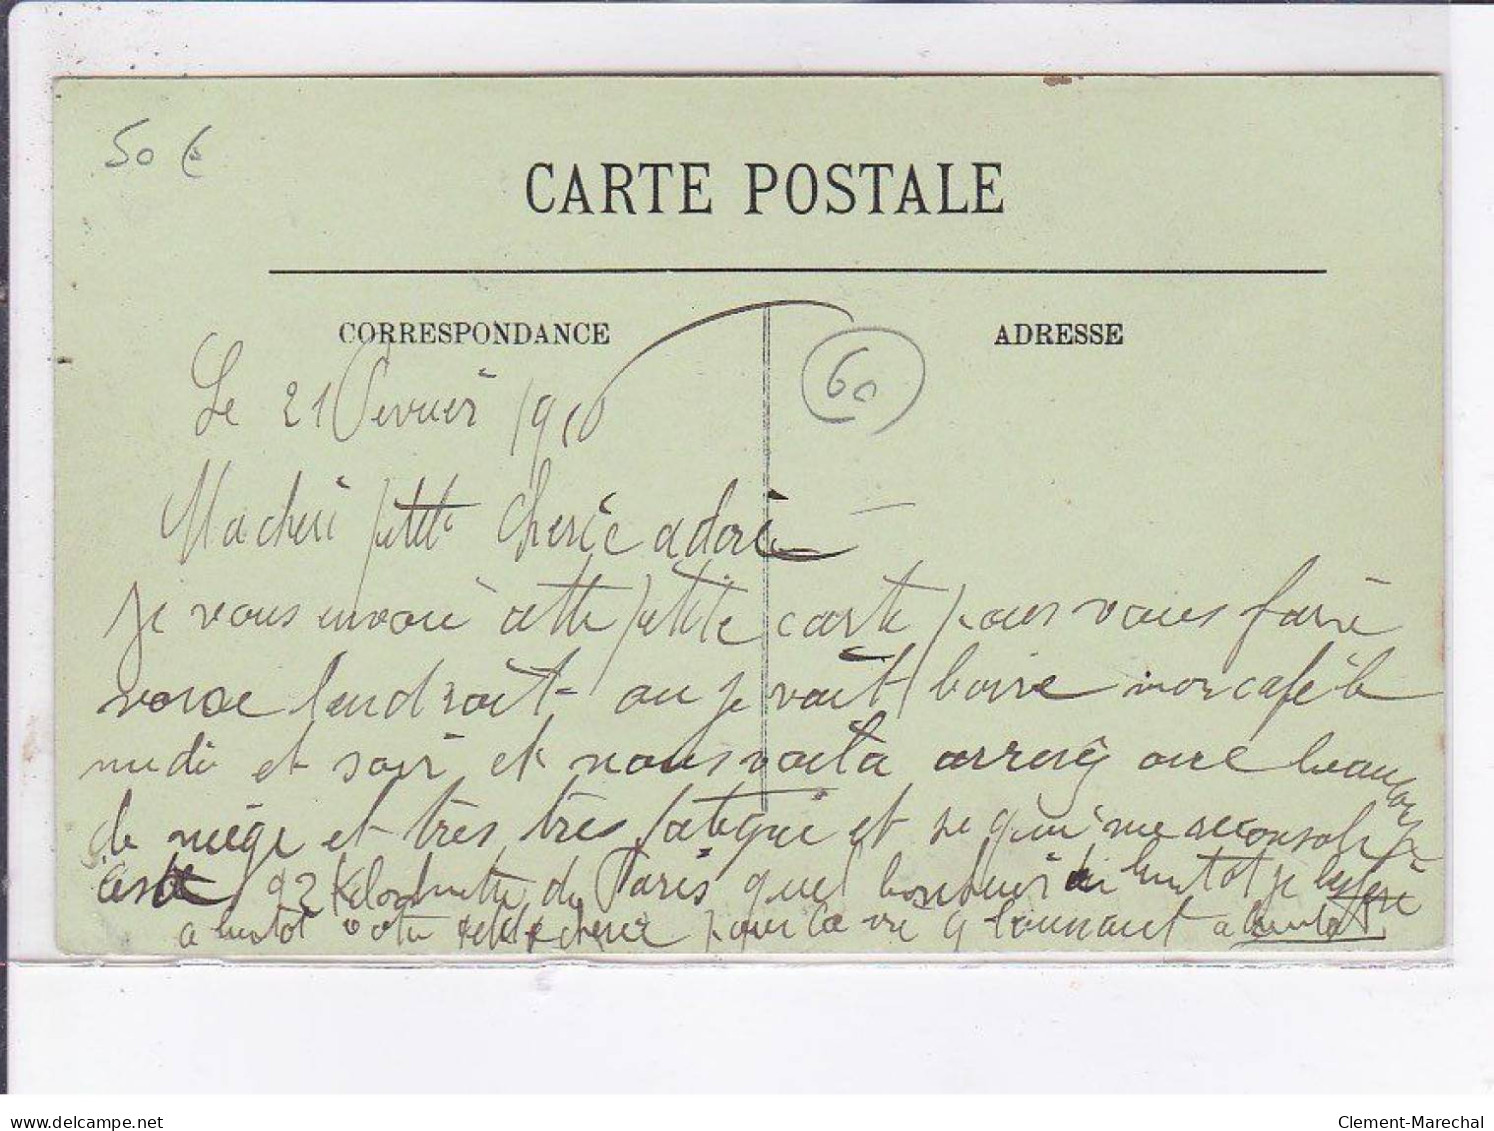 50 €
CARTE POSTALE
CORRESPONDANCE
ADRESSE
60
Le 21 Fevrier 1910
Ma cheri petite cherie adorée
je vous envoie cette petite carte pour vous faire
voir lendroit ou je vait boire mon café le
midi et soir et nous voila arrivé avec beaucoup
de neige et très très fatigué et se qui me reconsole
cest 92 Kilometre de Paris quel bonheur a bientot je
a bientot votre petite cherie pour la vie a bientot
delcampe.net
Clement-Marechal